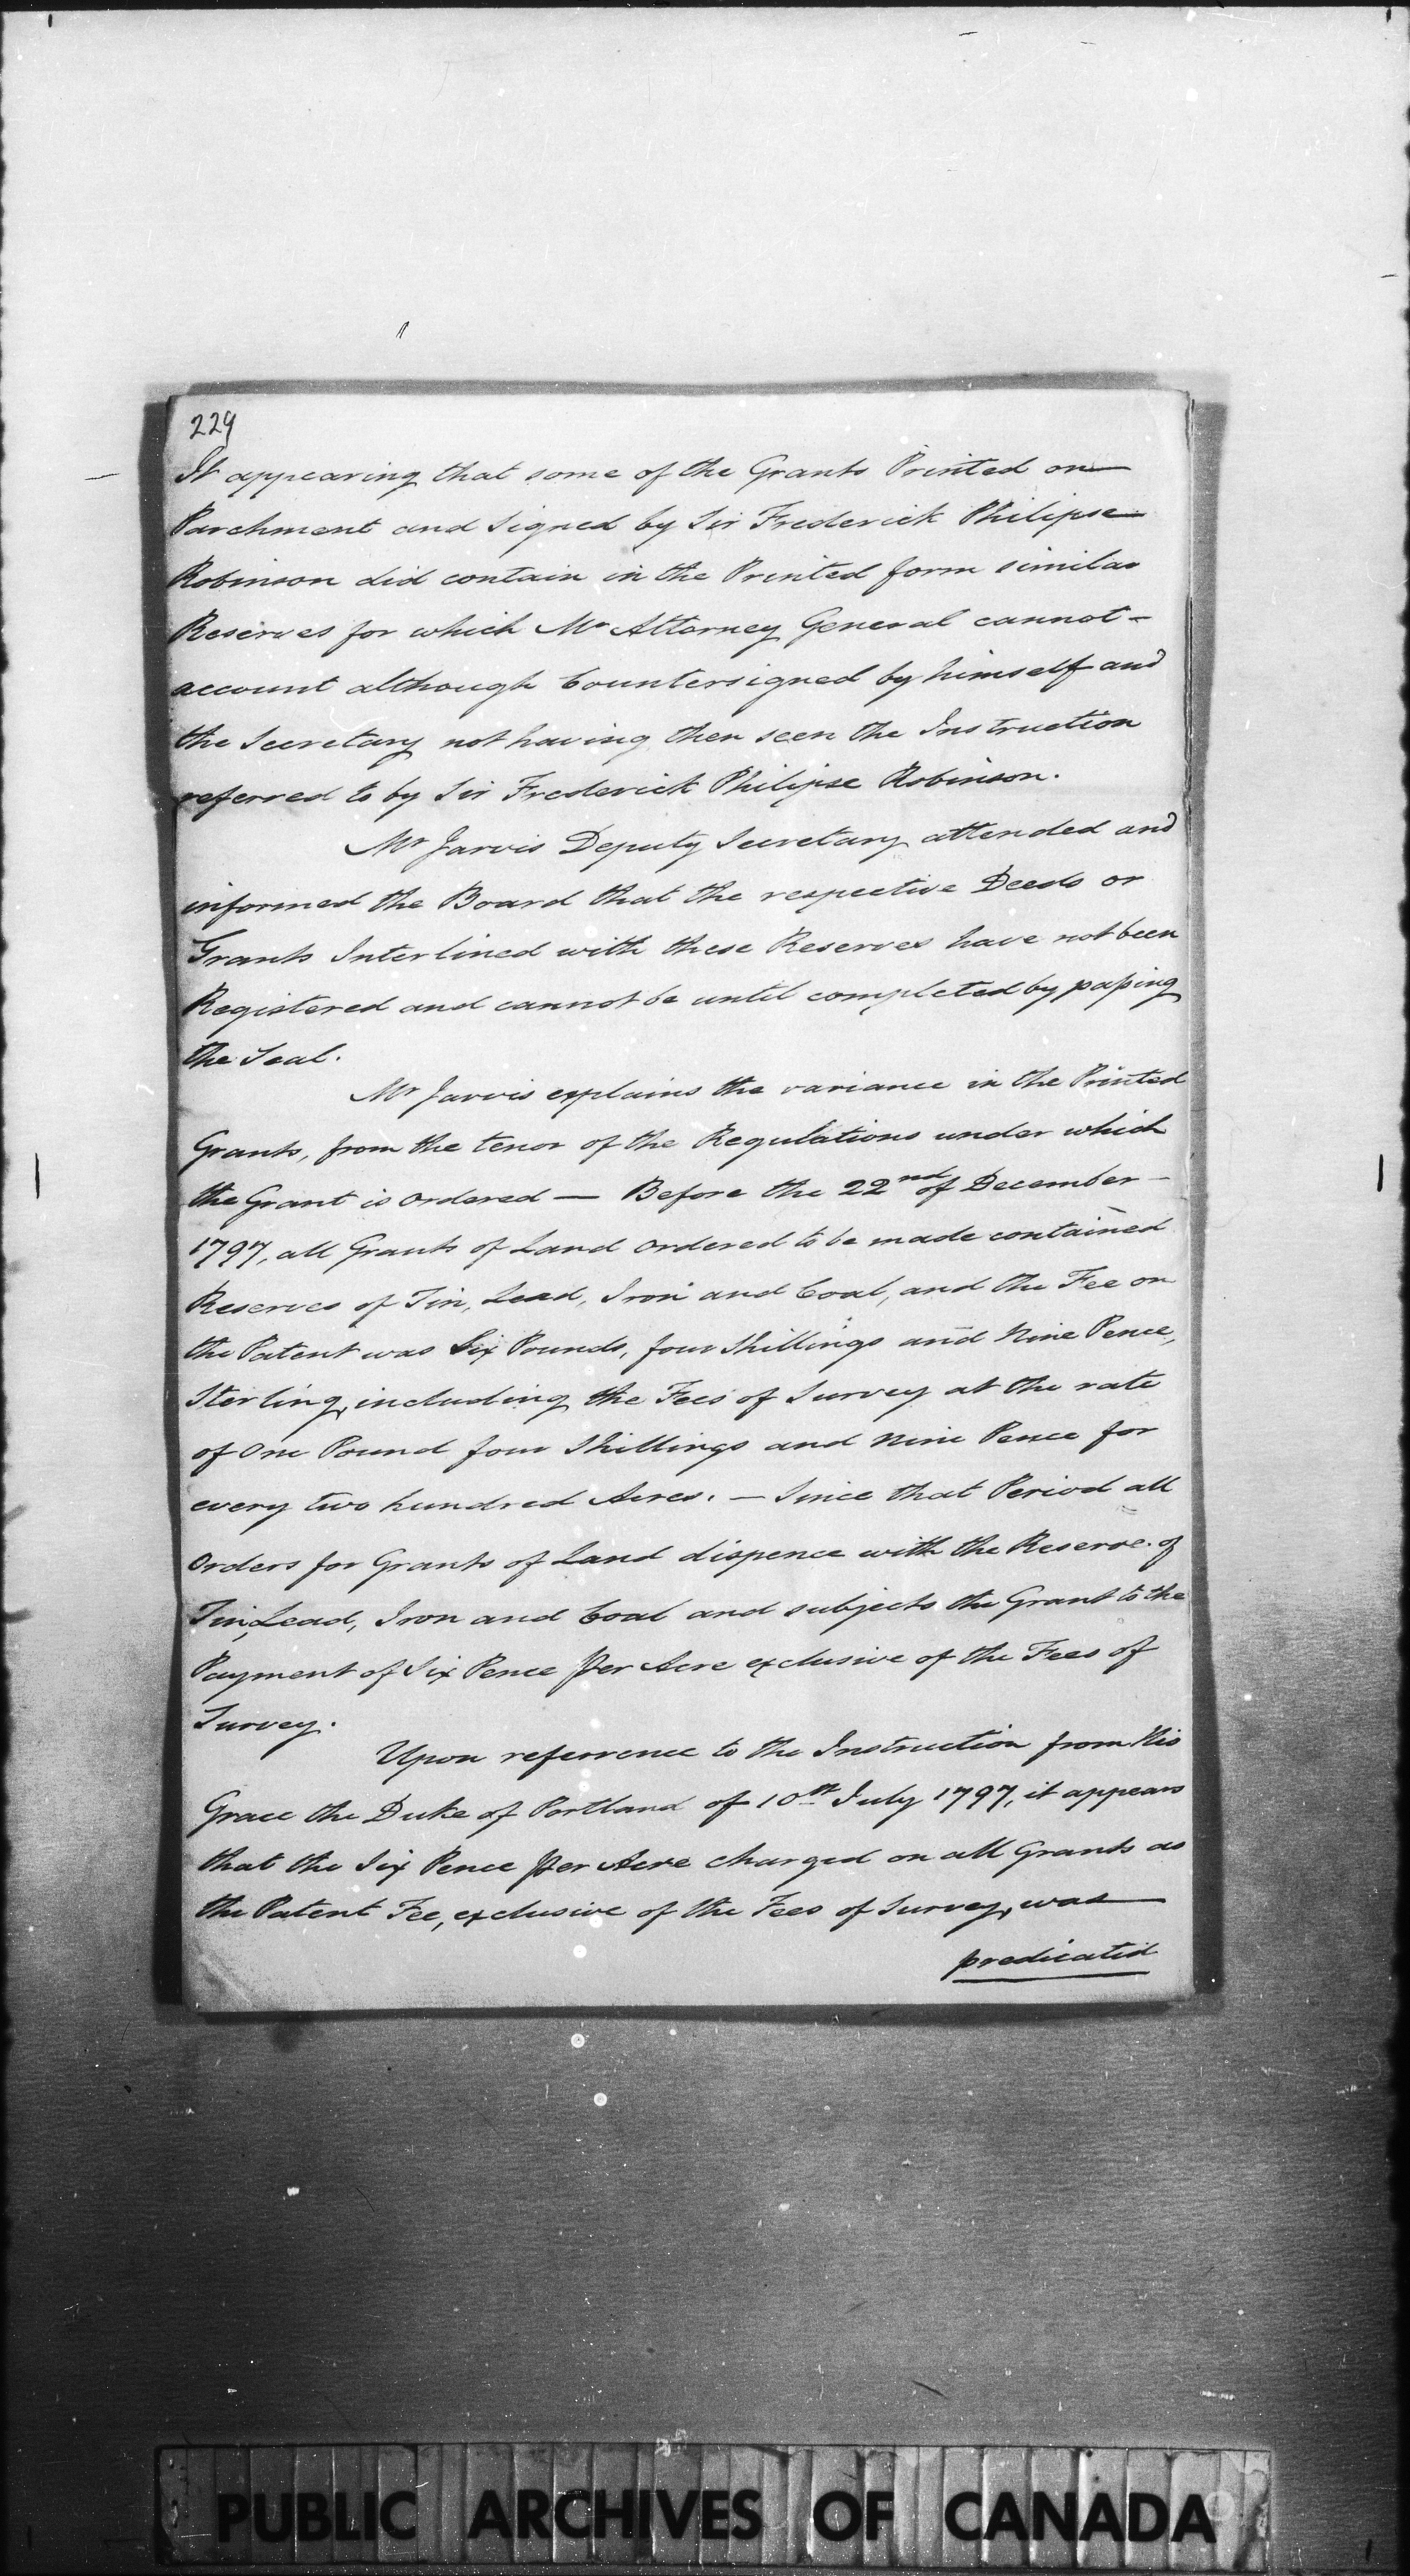 229
It appearing that some of the Grants Printed on
Parchment and Signed by Sir Frederick Philipse
Robinson did contain in the Printed form similar
Reserves for which Mr Attorney General cannot -
account although Countersigned by himself and
the Secretary not having then seen the Instruction
referred to by Sir Frederick Philipse Robinson.
Mr Jarvis Deputy Secretary attended and
informed the Board that the respective Deeds or
Grants Interlined with these Reserves have not been
Registered and cannot be until completed by paſsing
the Seal.
Mr Jarvis explains the variance in the Printed
Grants, from the tenor of the Regulations under which
the Grant is ordered — Before the 22nd of December -
1797, all Grants of Land ordered to be made contained
Reserves of Tin, Lead, Iron and Coal, and the Fee on
the Patent was Six Pounds, four Shillings and Nine Pence,
Sterling, including the Fees of Survey at the rate
of One Pound four Shillings and Nine Pence for
every two hundred Acres. — Since that Period all
Orders for Grants of Land dispence with the Reserve of
Tin, Lead, Iron and Coal and subjects the Grant to the
Payment of Six Pence Per Acre exclusive of the Fees of
Survey.
Upon referrence to the Instruction from His
Grace the Duke of Portland of 10th July 1797, it appears
that the Six Pence Per Acre charged on all Grants as
the Patent Fee, exclusive of the Fees of Survey, was
predicated
PUBLIC ARCHIVES OF CANADA